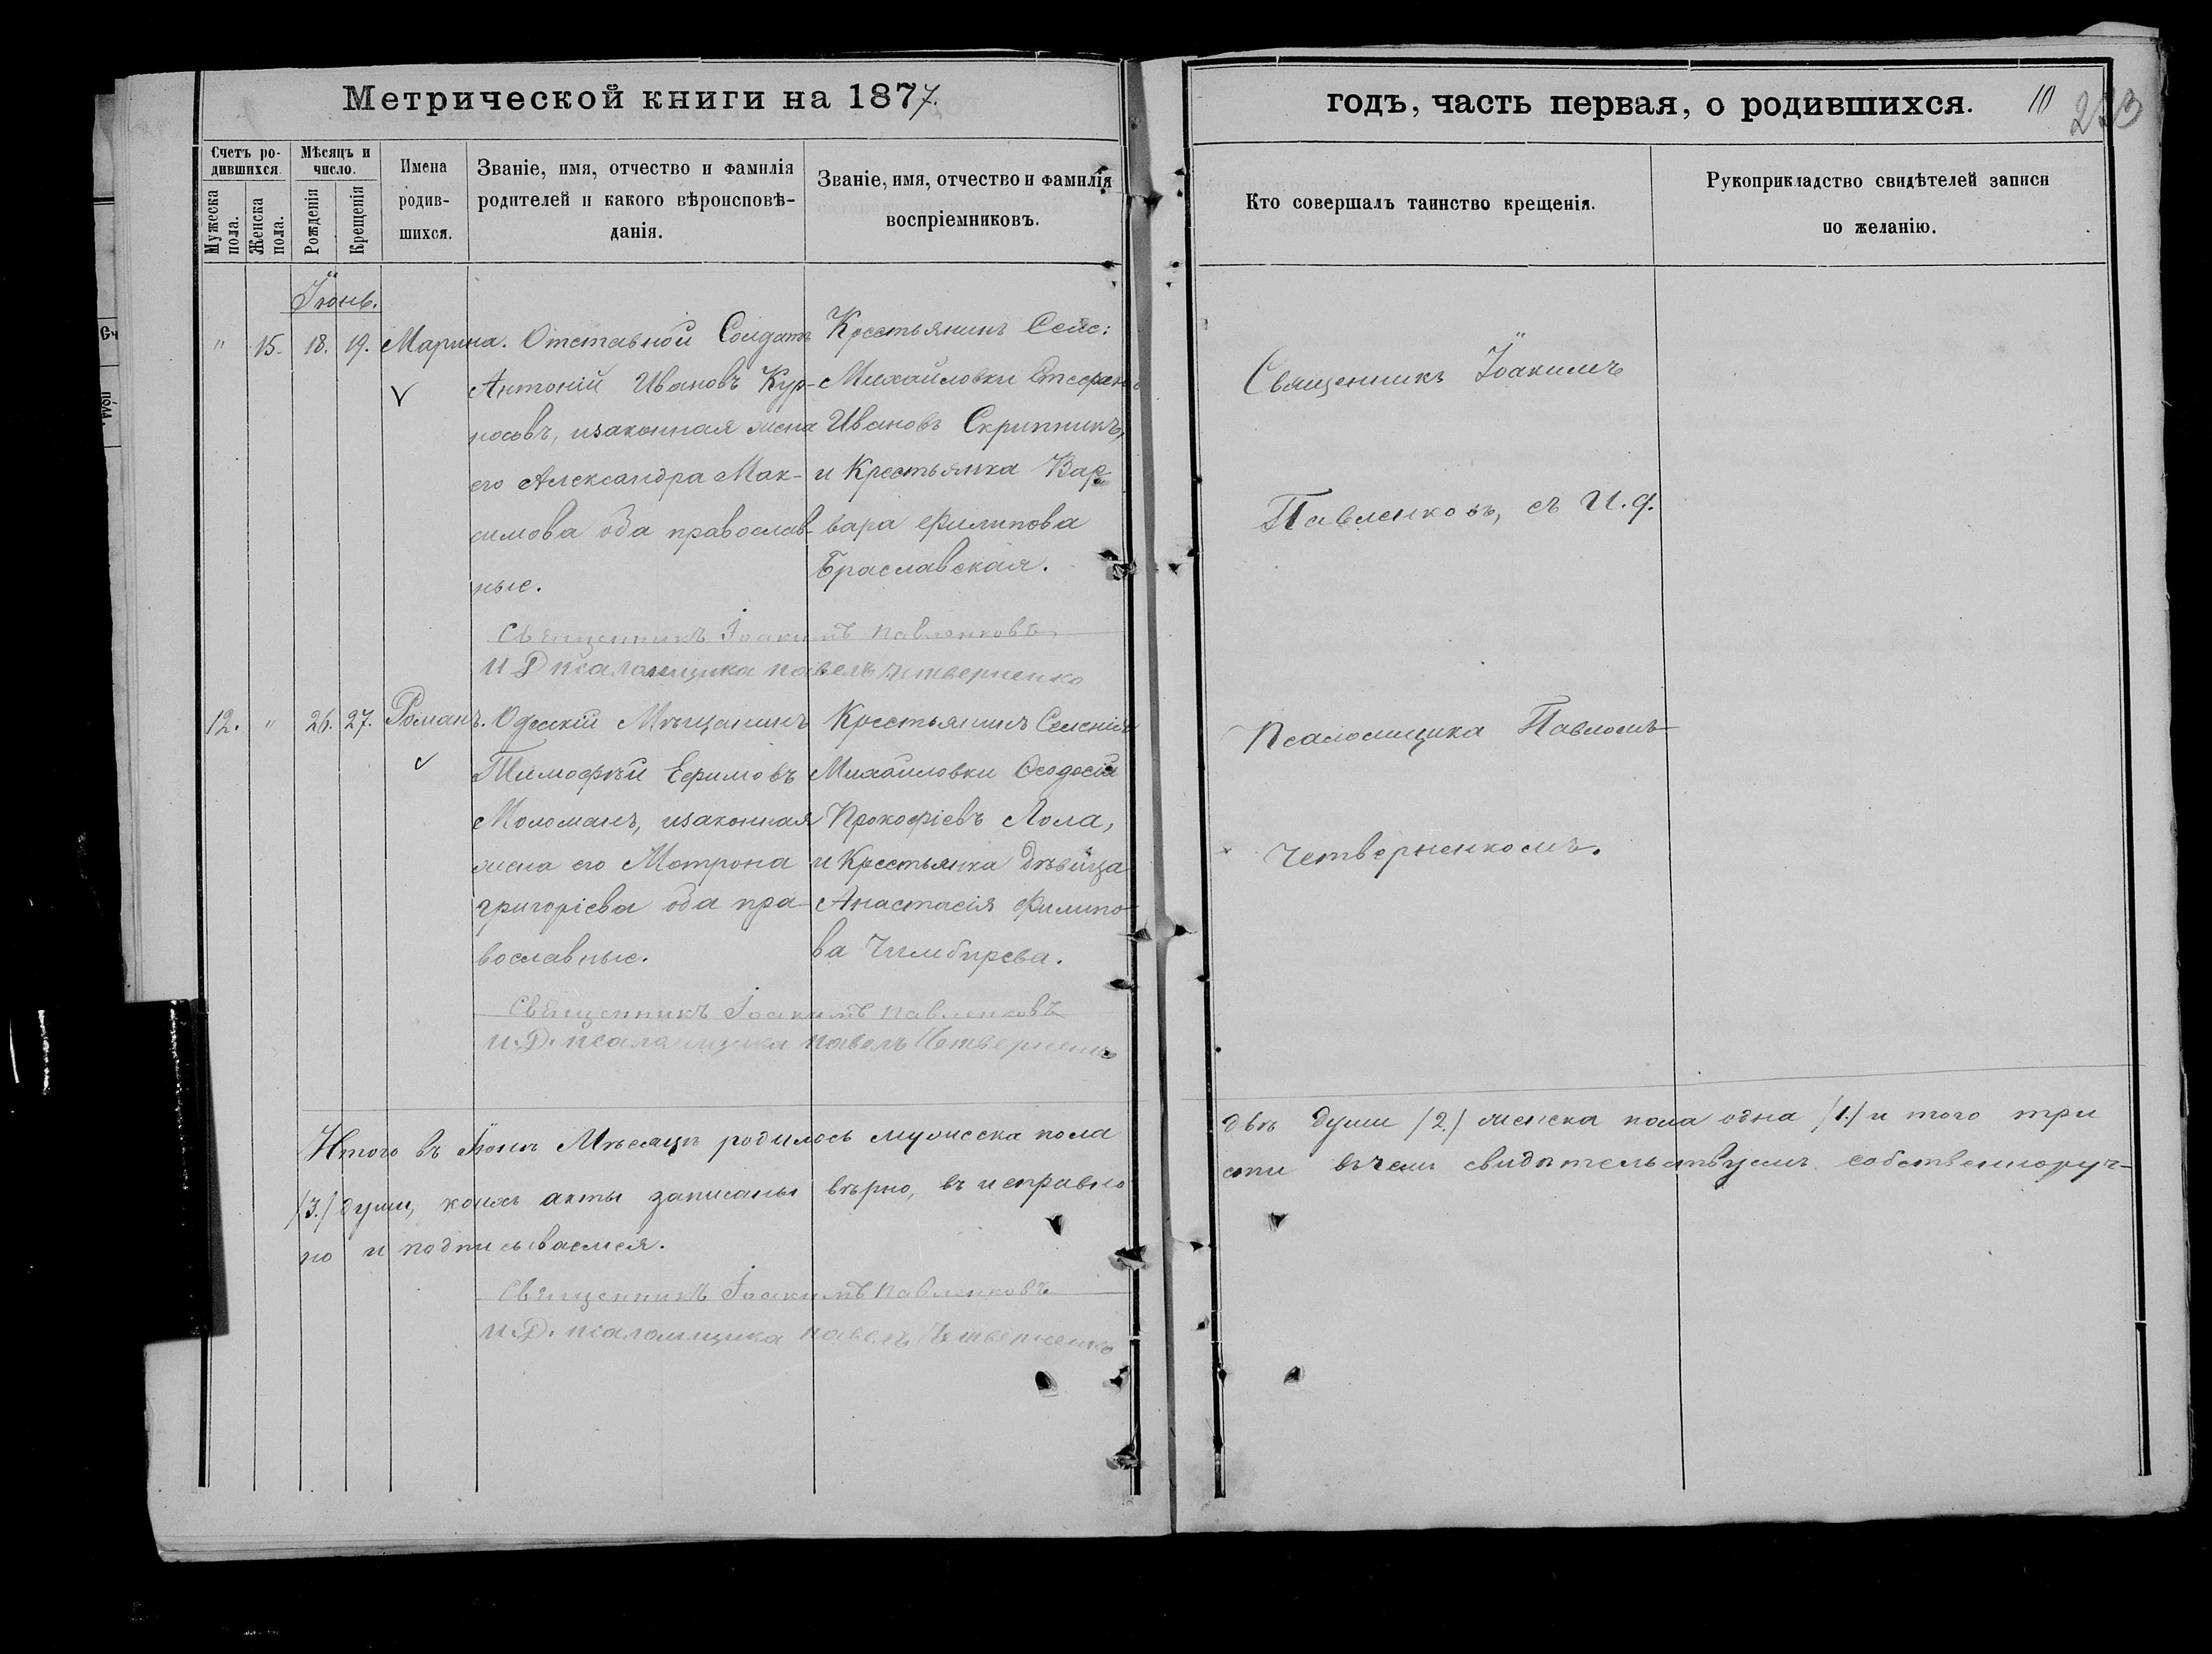 Метрической книги на 1877.
Счетъ ро-
дившихся.
Мужеска
пола.
Женска
пола.
Мѣсяцъ и
число.
Рожденія
Крещенія
Имена
родив-
шихся.
Званіе, имя, отчество и фамилія
родителей и какого вѣроисповѣ-
данія.
Званіе, имя, отчество и фамилія
воспріемниковъ.
Іюнь.
" 15. 18. 19. Марина.
Отставной Солдатъ
Антоній Ивановъ Кур-
носовъ, изаконная жена
его Александра Мак-
симова оба православ-
ные.
Крестьянинъ Селе:
Михайловки Стефанъ
Ивановъ Скрипникъ,
и Крестьянка Вар-
вара Филипова
Браславская.
Священникъ Іоакимъ Павленковъ
И Д псаломщика Павелъ Четверненко
12. " 26. 27. Романъ.
Одескій Мѣщанинъ
Тимофѣй Ефимовъ
Моломанъ, изаконная
жена его Матрона
Григоріева оба пра-
вославные.
Крестьянинъ Селенія
Михайловки Ѳеодосій
Прокофіевъ Лола,
и Крестьянка Дѣвица
Анастасія Филипо-
ва Чимбирева.
Священникъ Іоакимъ Павленковъ
И.Д. псаломщика Павелъ Четверненко
Итого въ Іюнѣ Мѣсяцѣ родилось мужеска пола
/3./ души, коихъ акты записаны вѣрно, въ исправно
но и подписываемся.
Священникъ Іоакимъ Павленковъ
И.Д. псаломщика Павелъ Четверненко
годъ, часть первая, о родившихся.
10
223
Кто совершалъ таинство крещенія.
Рукоприкладство свидѣтелей записи
по желанію.
Священникъ Іоакимъ
Павленковъ, съ И.д.
Псаломщика Павломъ
Четверненкомъ.
двѣ души /2./ женска пола одна /1./ и того три
сти въчемъ свидѣтельствуемъ собственноруч-